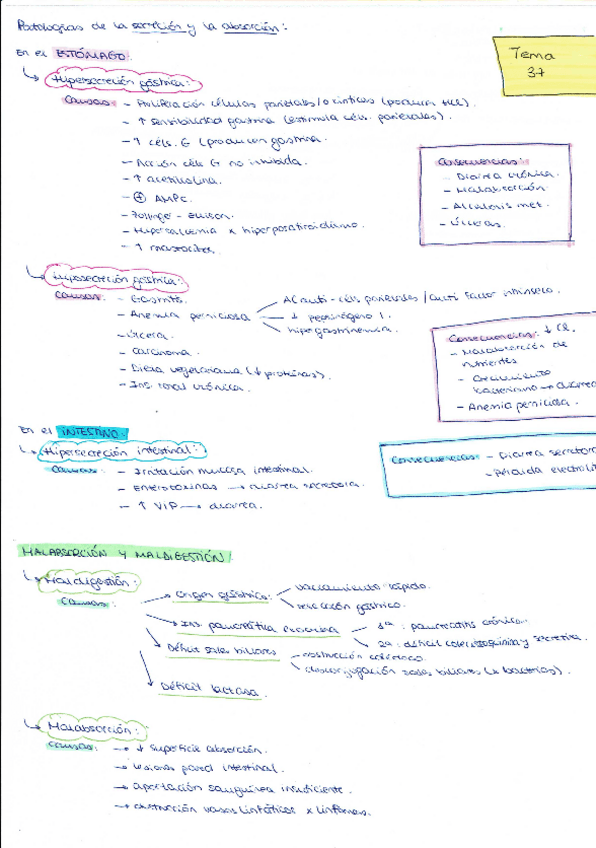 Patologías de la secreción y la absorción:
Tema
37
En el ESTÓMAGO:
↳ Hipersecreción gástrica:
Causas: - Proliferación células parietales/oxínticas (producen HCl).
- ↑ sensibilidad gastrina (estimula céls. parietales).
- ↑ céls. G (producen gastrina.
- Acción céls G no inhibida.
- ↑ acetilcolina.
- ⊕ AMPc.
- Zollinger - Ellison.
- Hipercalcemia x hiperparatiroidismo.
- ↑ mastocitos.
Consecuencias:
- Diarrea crónica.
- Malabsorción.
- Alcalosis met.
- Úlceras.
↳ Hiposecreción gástrica:
Causas: - Gastritis.
- Anemia perniciosa
AC anti-céls parietales / anti factor intrínseco.
↓ pepsinógeno I.
hipergastrinemia.
- Úlcera.
- Carcinoma.
- Dieta vegetariana (↓ proteínas).
- Ins. renal crónica.
Consecuencias: ↓ Cl.
- Malabsorción de
nutrientes
- Crecimiento
bacteriano → diarrea
- Anemia perniciosa.
En el INTESTINO:
↳ Hipersecreción intestinal:
Causas: - Irritación mucosa intestinal.
- Enterotoxinas → diarrea secretora.
- ↑ VIP → diarrea.
Consecuencias: - Diarrea secretora
- Pérdida electrolit
MALABSORCIÓN Y MALDIGESTIÓN:
↳ Maldigestión:
Causas:
→ Origen gástrico:
vaciamiento rápido.
resección gástrica.
→ Ins. pancreática exocrina
1ª: pancreatitis crónica.
2ª: déficit colecistoquinina y secretina.
→ Déficit sales biliares
obstrucción colédoco.
desconjugación sales biliares (x bacterias).
→ Déficit lactasa.
↳ Malabsorción:
Causas: → ↓ superficie absorción.
→ lesiones pared intestinal.
→ aportación sanguínea insuficiente.
→ obstrucción vasos linfáticos x linfomas.